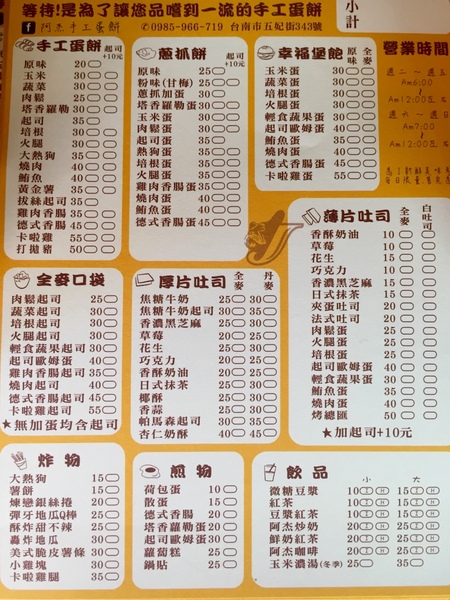 等待!是為了讓您品嚐到一流的手工蛋餅
小計
阿杰手工蛋餅 ✆0985-966-719 台南市五妃街343號
手工蛋餅 起司+10元
原味 20
玉米 30
蔬菜 30
肉鬆 25
塔香蘿勒 30
起司 35
培根 30
火腿 30
大熱狗 35
燒肉 40
鮪魚 40
黃金薯 35
拔絲起司 35
雞肉香腸 35
德式香腸 45
卡啦雞 50
打拋豬 50
蔥抓餅 起司+10元
原味 25
粉味(甘梅) 25
蔥抓加蛋 30
塔香蘿勒蛋 35
玉米蛋 35
肉鬆蛋 30
起司蛋 35
熱狗蛋 35
培根蛋 35
火腿蛋 35
雞肉香腸蛋 35
燒肉蛋 40
鮪魚蛋 40
德式香腸蛋 45
幸福堡飽 原味 全麥
玉米蛋 30
蔬菜蛋 30
培根蛋 30
火腿蛋 30
輕食蔬果蛋 30
起司歐姆蛋 35
鮪魚蛋 35
燒肉蛋 35
德式香腸蛋 45
營業時間
週二～週五
Am6:00
Am12:00左右
週六～週日
Am7:00
Am12:00左右
全麥口袋
肉鬆起司 25
蔬菜起司 30
培根起司 30
火腿起司 30
輕食蔬果起司 30
起司歐姆蛋 40
雞肉香腸起司 35
燒肉起司 40
鮪魚起司 40
德式香腸起司 45
卡啦雞起司 55
★無加蛋均含起司
厚片吐司 全麥 丹麥
焦糖牛奶 25 30
焦糖牛奶起司 30 35
香濃黑芝麻 25 30
草莓 20 25
花生 25 30
巧克力 20 25
香酥奶油 20 25
日式抹茶 25 30
椰酥 25 30
香蒜 25 30
帕馬森起司 30 35
杏仁奶酥 40 45
薄片吐司 全麥 白吐司
香酥奶油 10
草莓 10
花生 10
巧克力 10
香濃黑芝麻 15
日式抹茶 15
夾蛋吐司 20
法式吐司 20
肉鬆蛋 25
火腿蛋 25
培根蛋 25
起司歐姆蛋 30
輕食蔬果蛋 30
鮪魚蛋 35
燒肉蛋 40
烤總匯 50
★加起司+10元
炸物
大熱狗 15
薯餅 15
煉戀銀絲捲 20
彈牙地瓜Q棒 25
酥炸甜不辣 25
轟炸地瓜 30
美式脆皮薯條 30
小雞塊 30
卡啦雞腿 35
煎物
荷包蛋 10
散蛋 15
德式香腸 20
塔香蘿勒蛋 20
起司歐姆蛋 20
蘿蔔糕 25
鍋貼 25
飲品 小 大
微糖豆漿 10 15
紅茶 10 15
豆漿紅茶 10 15
阿杰炒奶 20 25
鮮奶紅茶 20 25
阿杰咖啡 20 25
玉米濃湯(冬季) 25 35